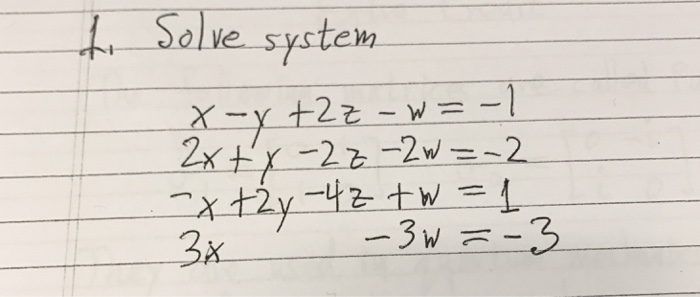 1. Solve system
x - y + 2z - w = -1
2x + y - 2z - 2w = -2
-x + 2y - 4z + w = 1
3x - 3w = -3